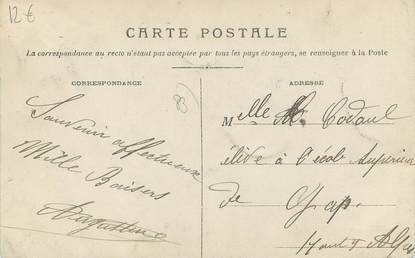 12€
CARTE POSTALE
La correspondance au recto n'étant pas acceptée par tous les pays étrangers, se renseigner à la Poste
CORRESPONDANCE
Souvenir affectueux
Mille Baisers
Augustine
ADRESSE
Melle
élève à l'école supérieure
de Gap